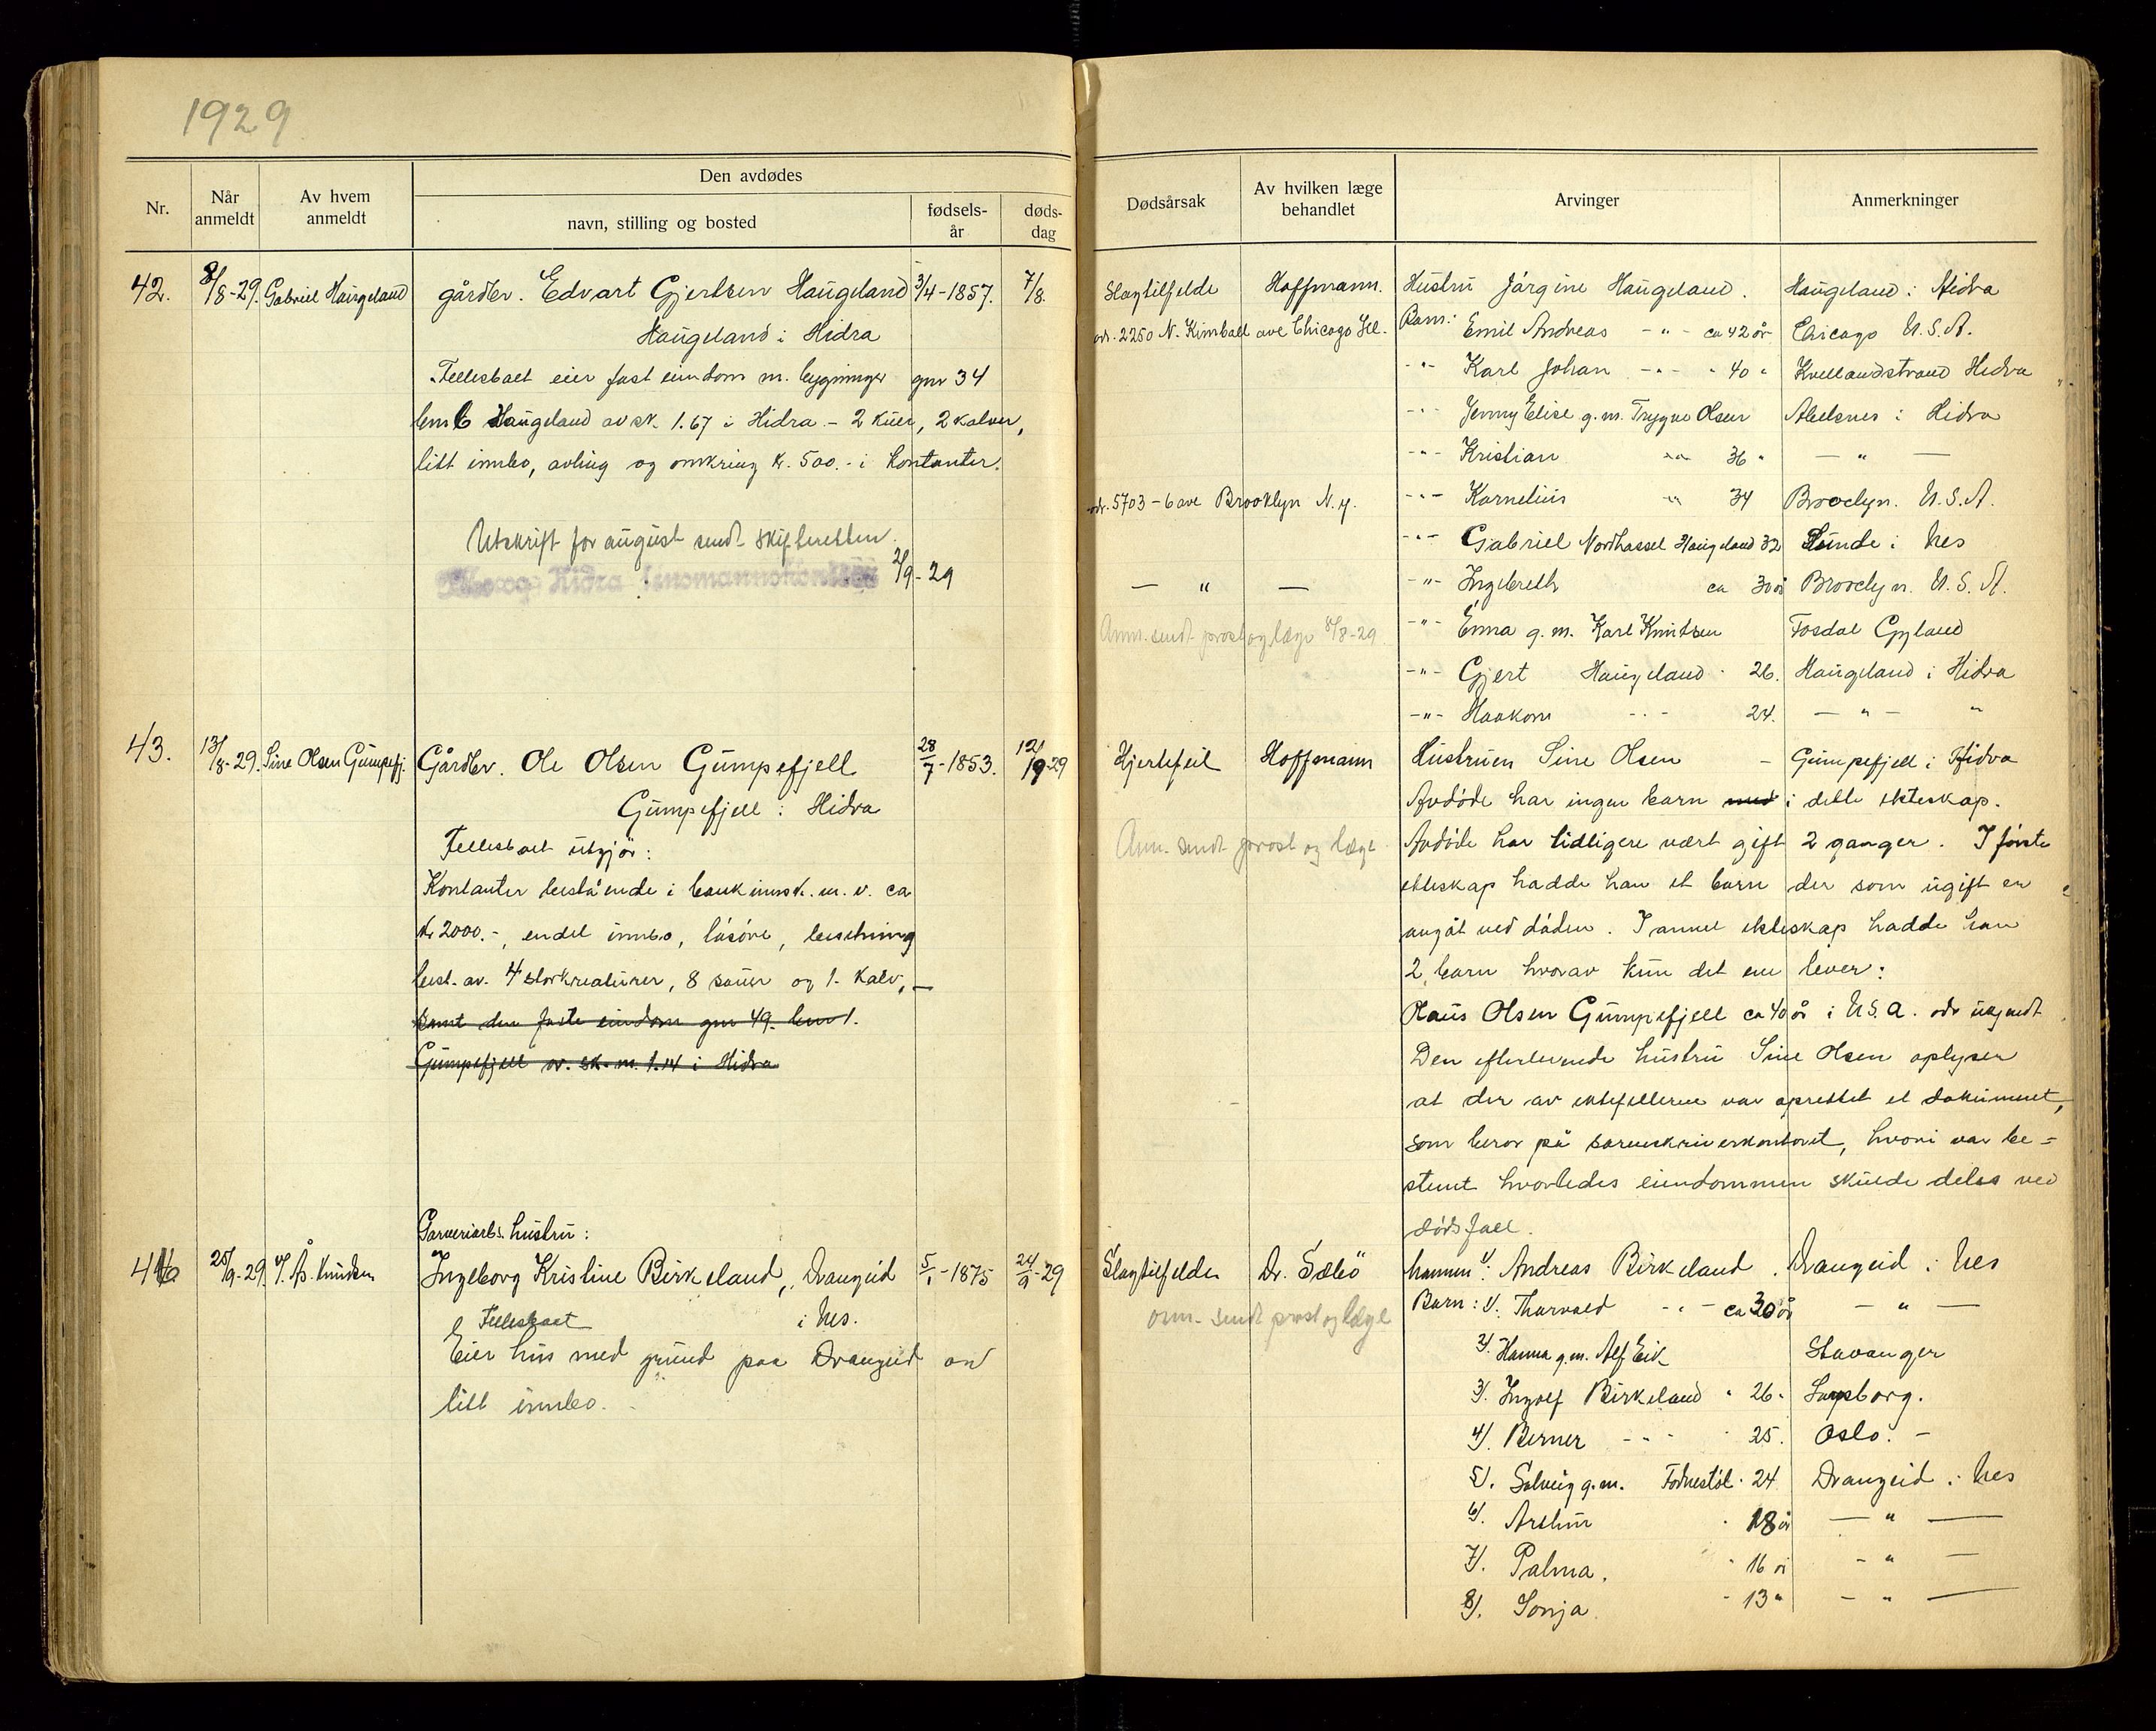 1929
Nr.
Når anmeldt
Av hvem anmeldt
Den avdødes
navn, stilling og bosted
fødsels-år
døds-dag
Dødsårsak
Av hvilken læge behandlet
Arvinger
Anmerkninger
42. 8/8-29. Gabriel Haugeland gårdbr. Edvart Gjertsen Haugeland 3/4-1857. 7/8.
Haugeland i Hidra
Fellesboet eier fast eiendom m. bygninger gnr 34
bnr 6 Haugeland av sk. 1.67 i Hidra - 2 kuer, 2 kalver,
litt innbo, avling og omkring kr. 500.- i kontanter.
Utskrift for august sendt skifteretten.
Hidra lensmannskontor 2/9-29
43. 13/8-29. Sine Olsen Gumpefj. Gårdbr. Ole Olsen Gumpefjell 28/7-1853. 12/ 29
Gumpefjell i Hidra
Fellesboet utgjør:
Kontanter bestående i bankinnsk. m. v. ca
kr 2000.-, endel innbo, løsøre, besetning
best. av. 4 storkreaturer, 8 sauer og 1. kalv, -
samt den faste eiendom gnr 49. bnr 1.
Gumpefjell av. sk. m. 1.14 i Hidra
Garveriarb. hustru:
44 25/9-29 Ås. Knudsen Ingeborg Kristine Birkeland, Drangeid 5/1-1875 24/9-29
Fellesboet i Nes.
Eier hus med grund paa Drangeid og
litt innbo.
Slagtilfelde Hoffmann. Hustru Jørgine Haugeland. Haugeland i Hidra
adr. 2250 N. Kimball ave Chicago Ill. Barn: Emil Andreas -"- ca 42 år Chicago U.S.A.
-"- Karl Johan -"- " 40 " Kvellandstrand Hidra
-"- Jenny Elise g.m. Trygve Olsen Abelsnes i Hidra
-"- Kristian 36 " - " -
adr. 5703-6 ave Brooklyn N.y. -"- Kornelius 34 Brooclyn. U.S.A.
-"- Gabriel Nordhassel Haugeland 32 Sunde i Nes
- " - -"- Ingebreth ca 30 år Brooclyn. U.S.A.
Anm. sendt prost og læge 8/8-29 -"- Emma g.m. Karl Knutsen Fosdal Gyland
-"- Gjert Haugeland " 26. Haugeland i Hidra
-"- Haakon -"- 24. - " - "
Hjertefeil Hoffmann Hustruen Sine Olsen - Gumpefjell i Hidra
Avdøde har ingen barn med i dette ekteskap.
Anm. sendt prost og læge Avdøde har tidligere vært gift 2 ganger. I første
ekteskap hadde han et barn der som ugift er
avgåt ved døden. I annet ekteskap hadde han
2 barn hvorav kun det ene lever:
Olaus Olsen Gumpefjell ca 40 år i U.S.A. adr ukjendt
Den efterlevende hustru Sine Olsen oplyser
at der av ektefellerne var oprettet et dokument,
som beror på sorenskriverkontoret, hvori var be=
stemt hvorledes eiendommen skulde deles ved
dødsfall.
Slagtilfelde Dr. Sæbö Mannen: Andreas Birkeland. Drangeid i Nes
anm. sendt prost og læge Barn: 1/. Thorvald -"- ca 30 år - " -
2/. Hanna g.m. Alf Eik Stavanger
3/. Ingolf Birkeland " 26. Sarpsborg.
4/. Berner -"- " 25. Oslo. -
5/. Solveig g.m. Fodnestøl " 24 Drangeid i Nes
6/. Arthur " 18 år - " -
7/. Palma. " 16 år - " -
8/. Sonja. " 13 " - " -